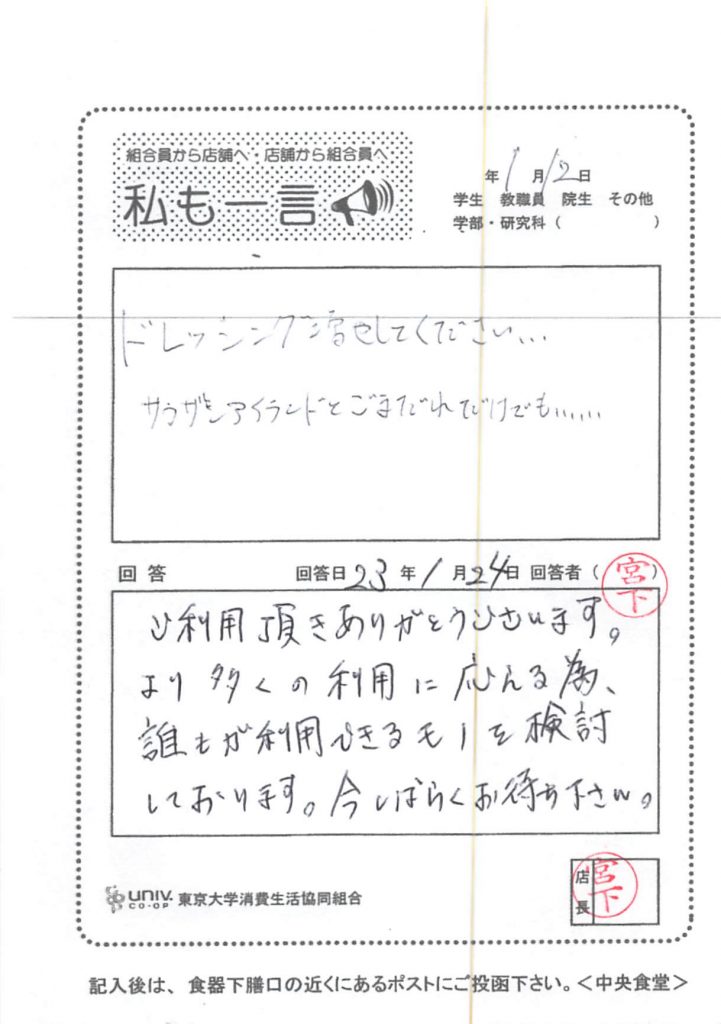 組合員から店舗へ・店舗から組合員へ
私も一言
年1月12日
学生 教職員 院生 その他
学部・研究科( )
ドレッシング増やしてください...
サウザンアイランドとごまだれだけでも......
回答 回答日23年1月24日 回答者(宮下)
ご利用頂きありがとうございます。
より多くの利用に応える為、
誰もが利用できるモノを検討
しております。今しばらくお待ち下さい。
UNIV. CO-OP 東京大学消費生活協同組合
店長 宮下
記入後は、食器下膳口の近くにあるポストにご投函下さい。<中央食堂>